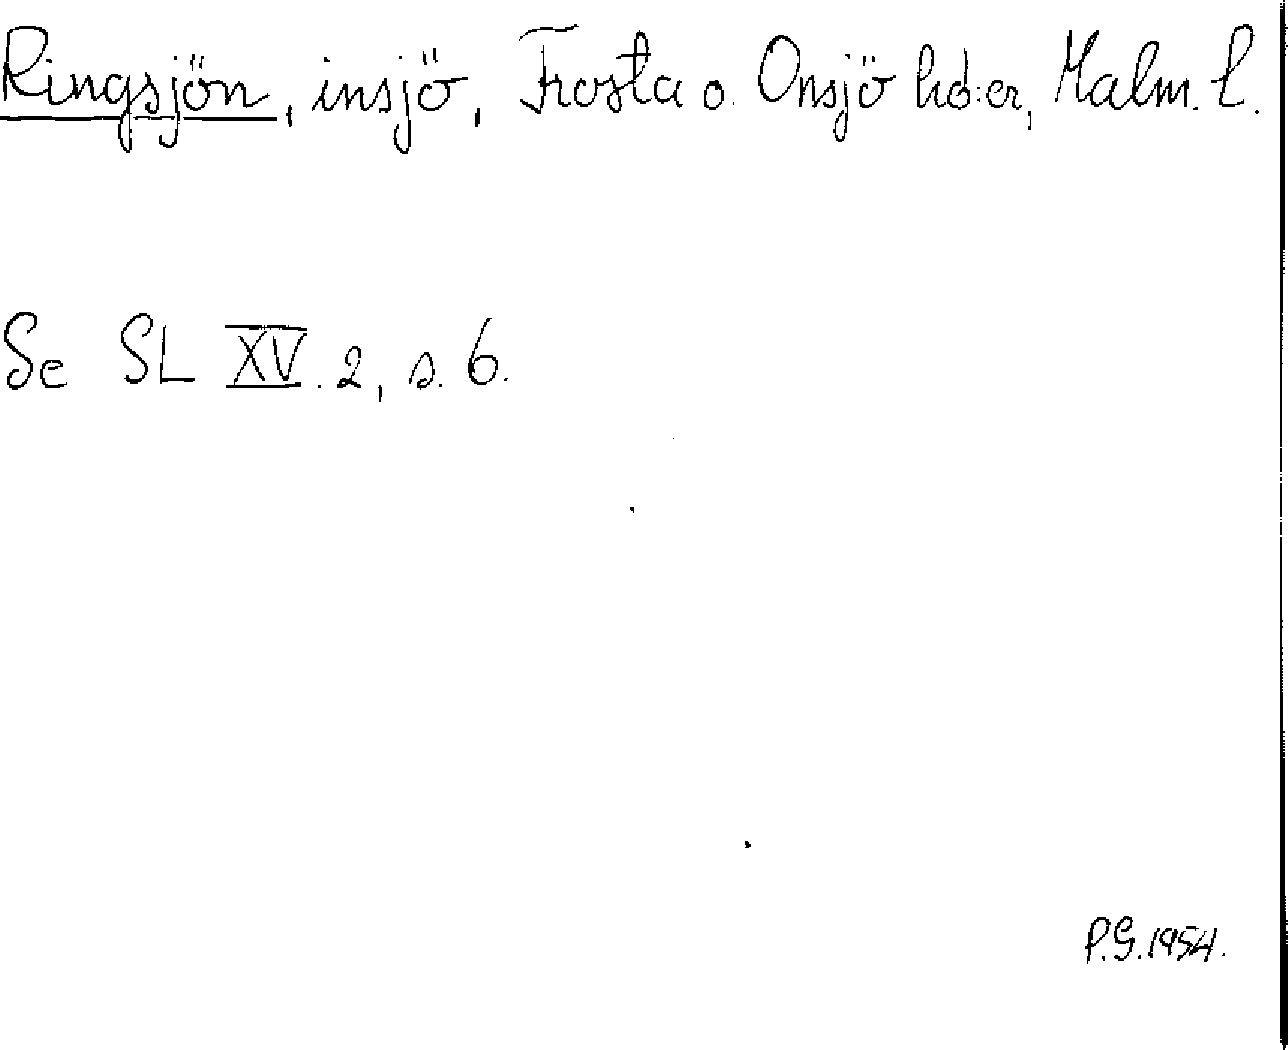 Ringsjön, insjö, Frosta o. Onsjö hd:er, Malm. l.
Se SL XV. 2, s. 6.
P.G. 1954.